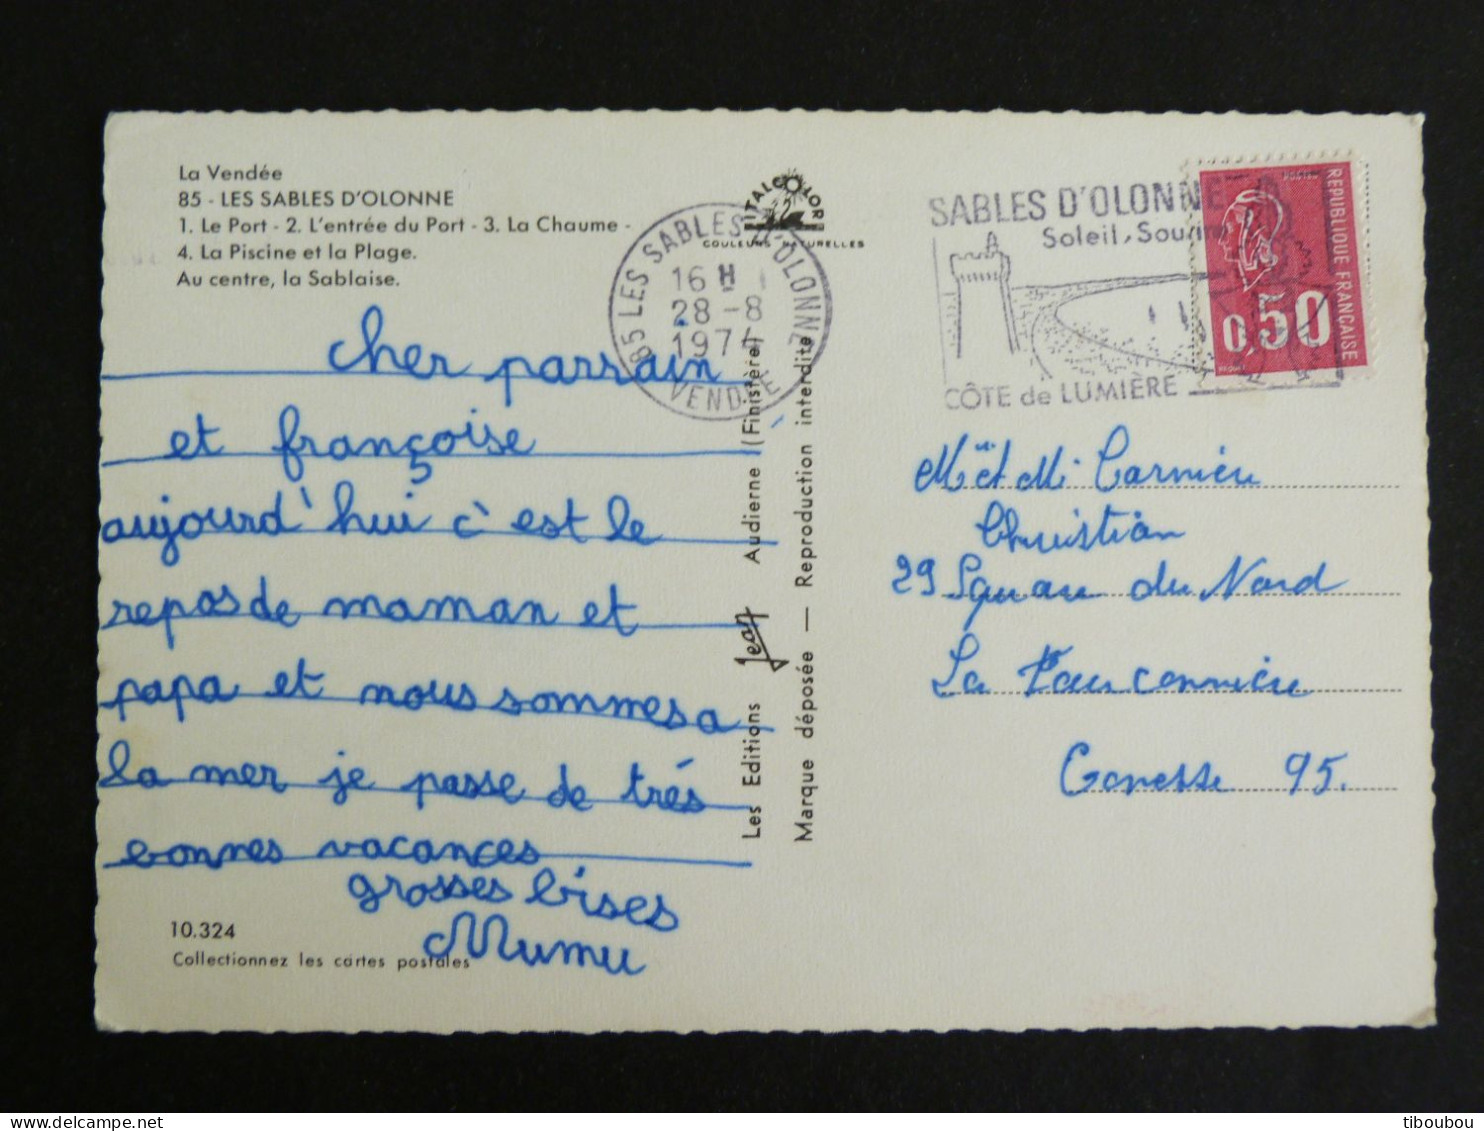 La Vendée
85 - LES SABLES D'OLONNE
1. Le Port - 2. L'entrée du Port - 3. La Chaume -
4. La Piscine et la Plage.
Au centre, la Sablaise.
cher parrain
et françoise
aujourd'hui c'est le
repos de maman et
papa et nous sommes a
la mer je passe de trés
bonnes vacances
grosses bises
Mumu
10.324
Collectionnez les cartes postales
ITALCOLOR
COULEURS NATURELLES
85 LES SABLES D'OLONNE
16 H
28 - 8
1974
VENDÉE
Les Editions Jean Audierne (Finistère)
Marque déposée — Reproduction interdite
SABLES D'OLONNE
Soleil, Sourire
CÔTE de LUMIÈRE
POSTES
REPUBLIQUE FRANÇAISE
0,50
M et M Carnieu
Christian
29 Square du Nord
La Fauconnière
Gonesse 95.
tiboubou